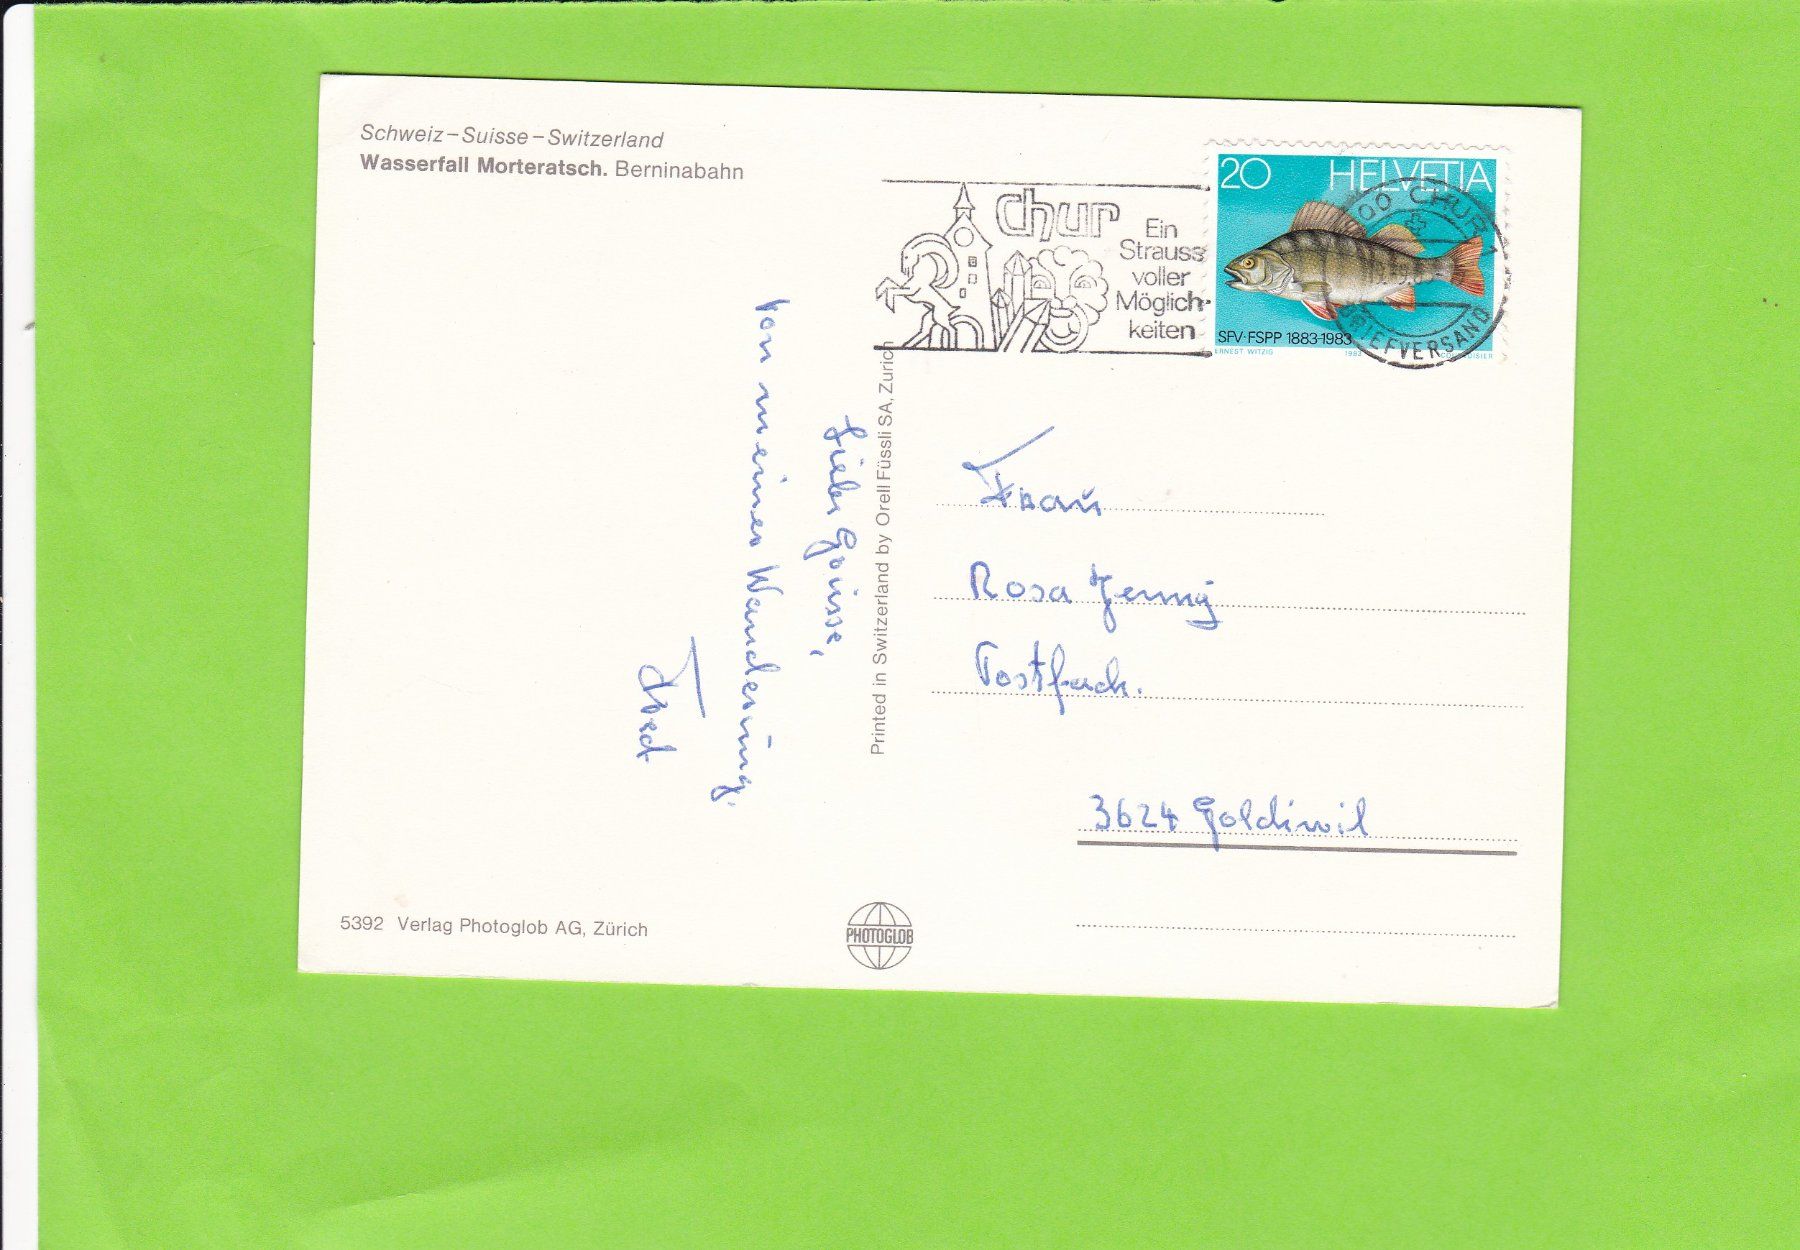 Schweiz–Suisse–Switzerland
Wasserfall Morteratsch. Berninabahn
chur
Ein
Strauss
voller
Möglich-
keiten
20 HELVETIA
SFV·FSPP 1883-1983
ERNEST WITZIG 1983
CHUR 1
BRIEFVERSAND
Liebe Grüsse,
von meiner Wanderung.
Printed in Switzerland by Orell Füssli SA, Zurich
Frau
Rosa Jenny
Postfach.
3624 Goldiwil
5392 Verlag Photoglob AG, Zürich
PHOTOGLOB